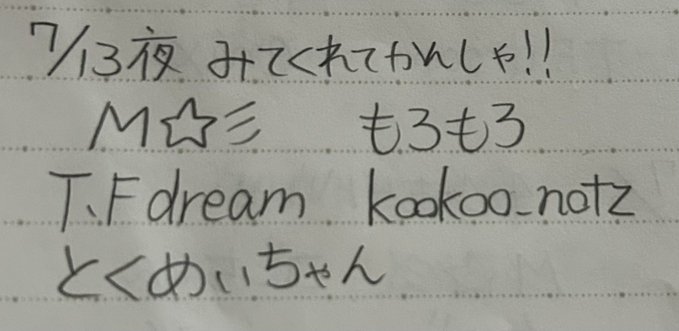 7/13夜 みてくれてかんしゃ!!
M☆ミ もろもろ
T.F dream kookoo_notz
とくめいちゃん